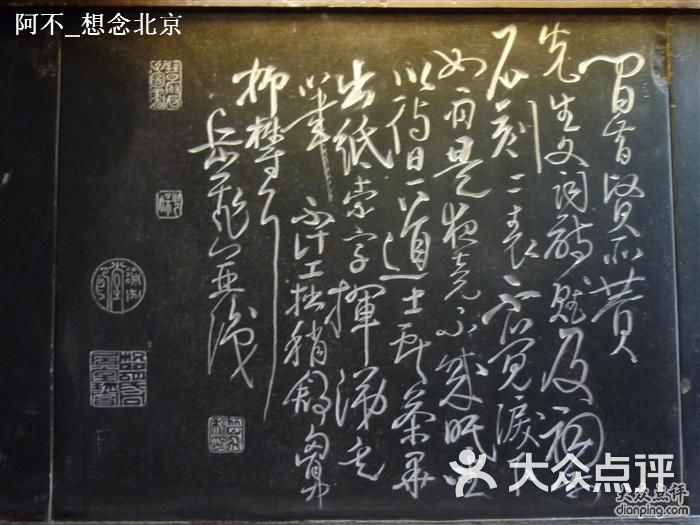 阿不_想念北京
間昔賢所贊
先生文詞詩賦及祠前
石刻二表不覺淚下
如雨是夜竟不成眠坐
以待旦道士獻茶畢
出紙索字揮涕走
筆不計工拙稍舒胸中
抑鬱耳
岳飛並識
大众点评
大众点评
dianping.com